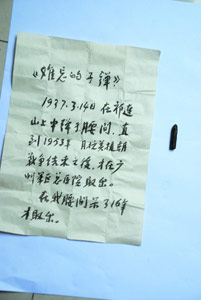 《难忘的子弹》
1937.3.14日在祁连
山上中弹于腰间,直
到1953年 月抗美援朝
战争结束之後,才在广
州军区总医院取出。
在我腰间呆了16年
才取出。